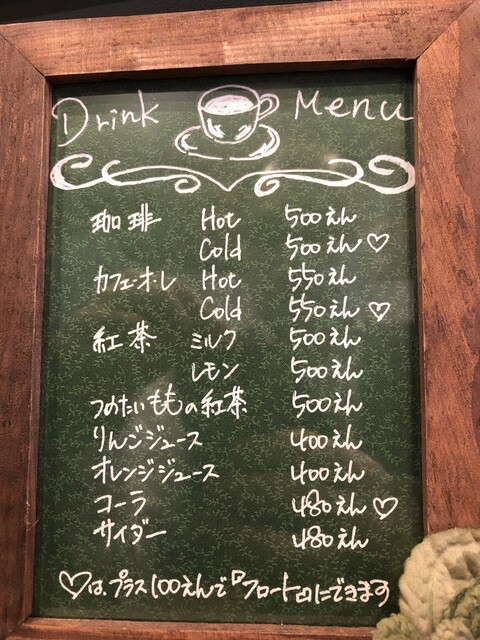 Drink Menu
珈琲 Hot 500えん
Cold 500えん♡
カフェ・オ・レ Hot 550えん
Cold 550えん♡
紅茶 ミルク 500えん
レモン 500えん
つめたいももの紅茶 500えん
りんごジュース 400えん
オレンジジュース 400えん
コーラ 480えん♡
サイダー 480えん
♡は、プラス100えんで『フロート』にできます